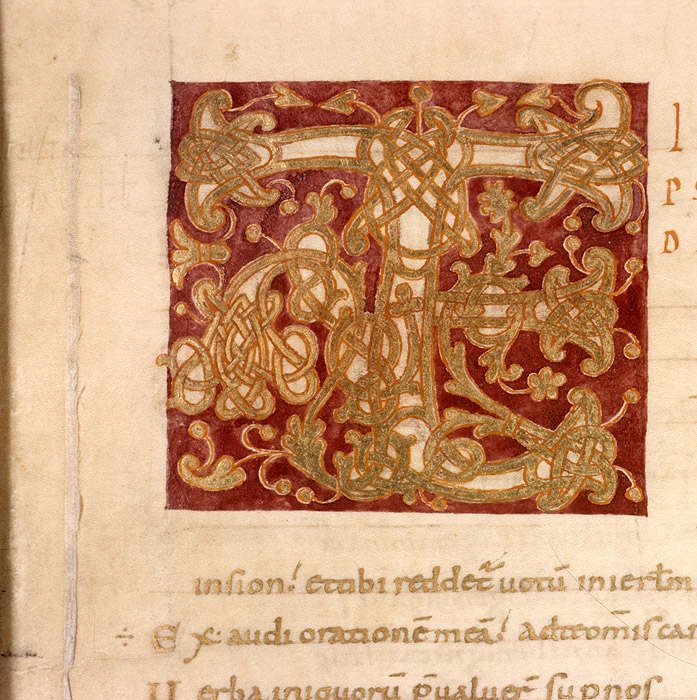 TE
l
p
D
insion: ettibi reddet̃ uotū inierl̄m
÷ Exaudi orationē meā: adteom̄is car
Uerba iniquorū p̄ualuer̄ sup nos